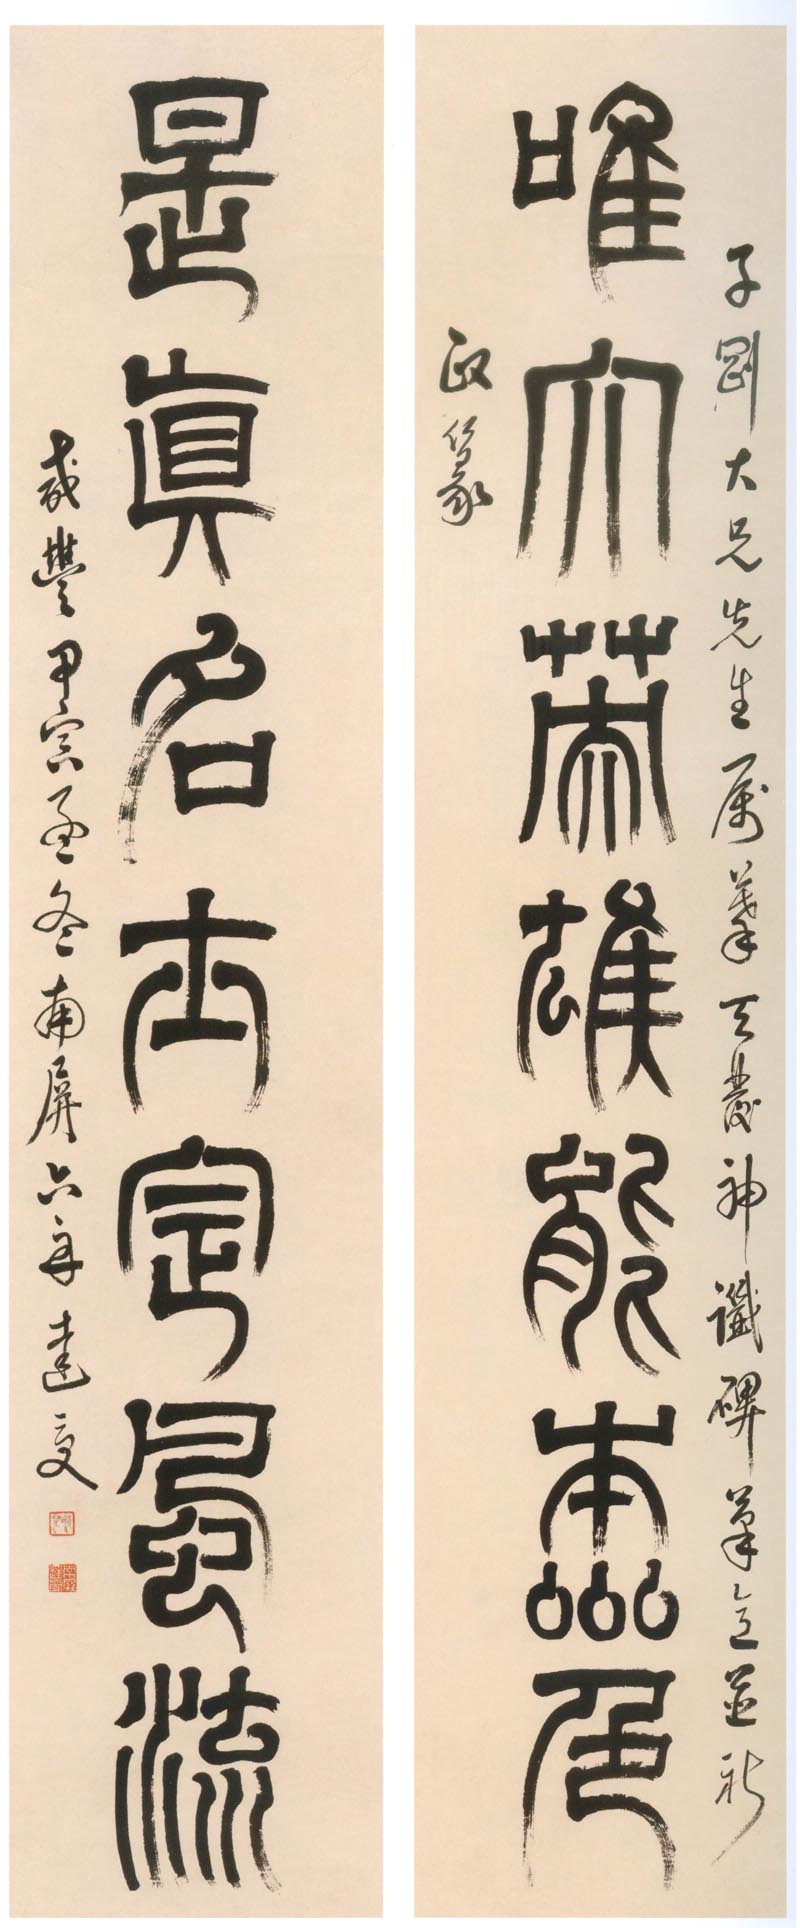 子剛大兄先生屬摹天發神讖碑筆意並祈
唯大英雄能本色
政篆
是真名士定風流
咸豐甲寅孟冬南屏六舟達受